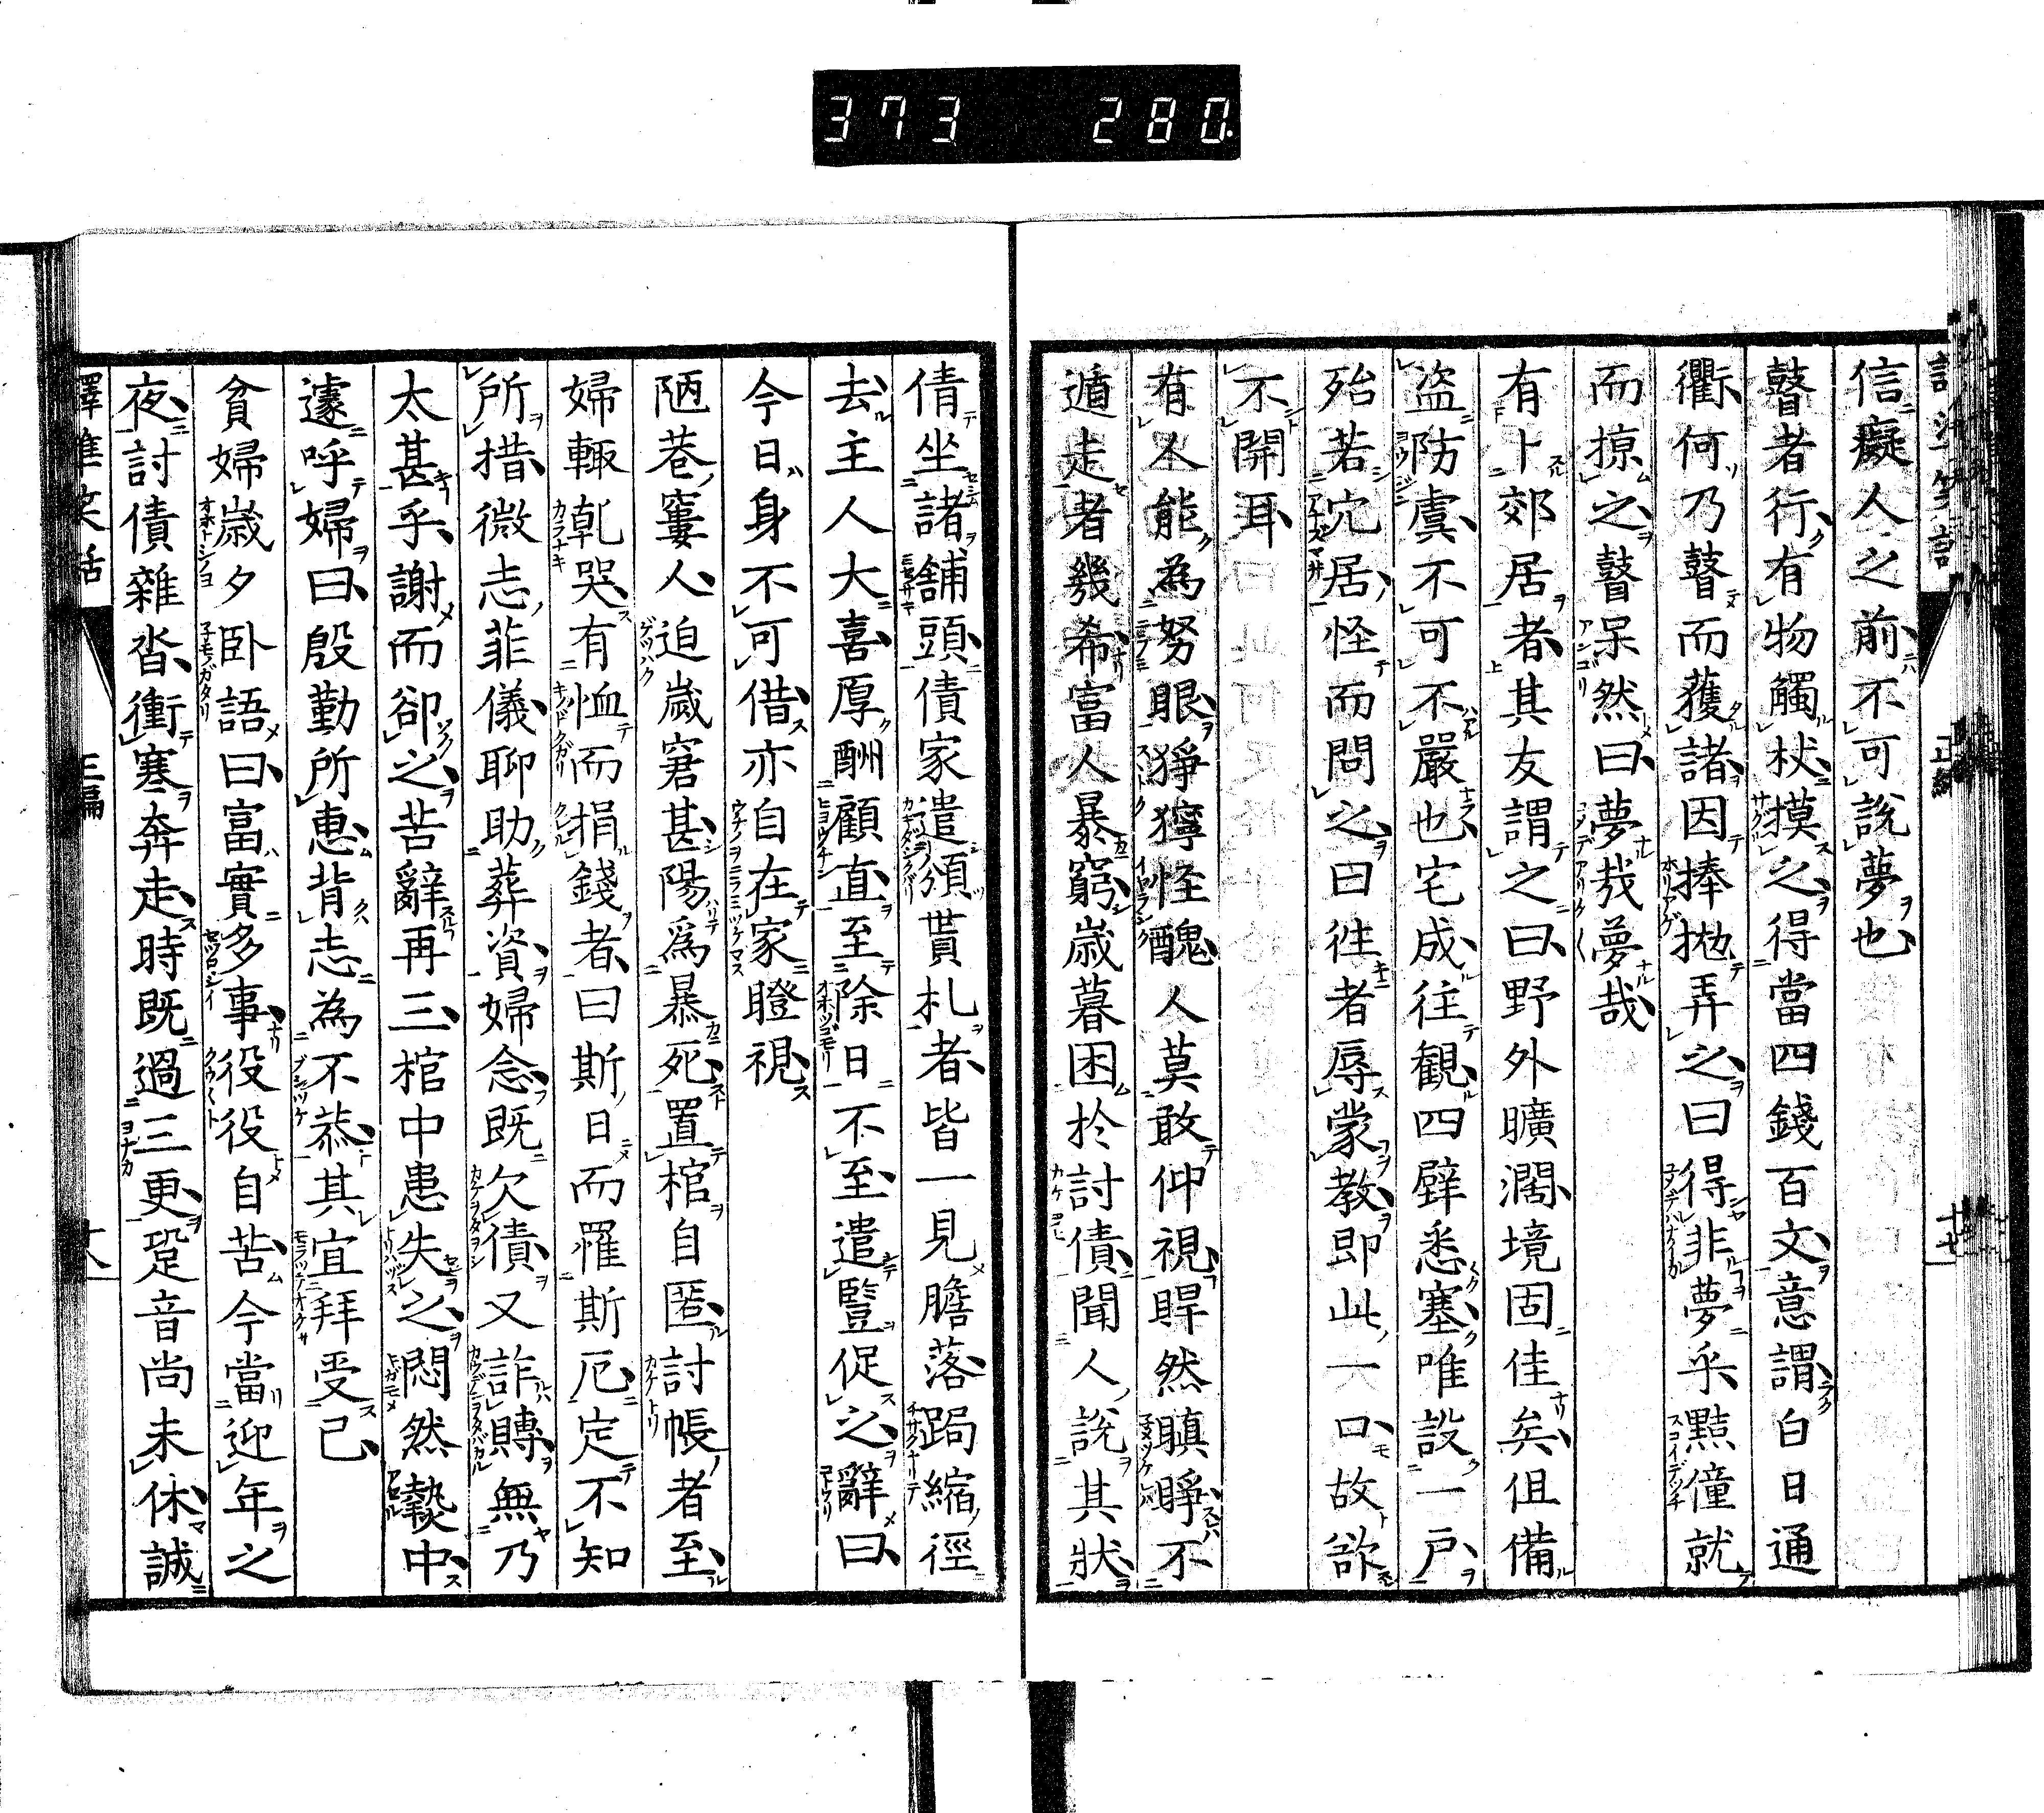 373 280.
信癡人之前不可說夢也
瞽者行有物觸杖摸之得當四錢百文意謂白日通
衢何乃瞽而獲諸因捧拋弄之曰得非夢乎黠僮就
而掠之瞽呆然曰夢哉夢哉
有卜郊居者其友謂之曰野外曠濶境固佳矣但備
盜防虞不可不嚴也宅成往觀四壁悉塞唯設一戶
殆若穴居怪而問之曰往者辱蒙教即此一口故欲
不開耳
有人不能為努眼猙獰怪醜人莫敢仰視睅然瞋睜不
遁走者幾希富人暴窮歲暮困於討債聞人說其狀
倩坐諸舖頭債家遣頒貰札者皆一見膽落跼縮徑
去主人大喜厚酬顧直至除日不至遣豎促之辭曰
今日身不可借亦自在家瞪視
陋巷窶人迫歲窘甚陽為暴死置棺自匿討帳者至
婦輙乾哭有恤而捐錢者曰斯日而罹斯厄定不知
所措微志菲儀聊助葬資婦念既欠債又詐賻無乃
太甚乎謝而卻之苦辭再三棺中患失之悶然褻中
遽呼婦曰殷勤所惠背志為不恭其宜拜受已
貧婦歲夕臥語曰富實多事役役自苦今當迎年之
夜討債雜沓衝寒奔走時既過三更跫音尚未休誠